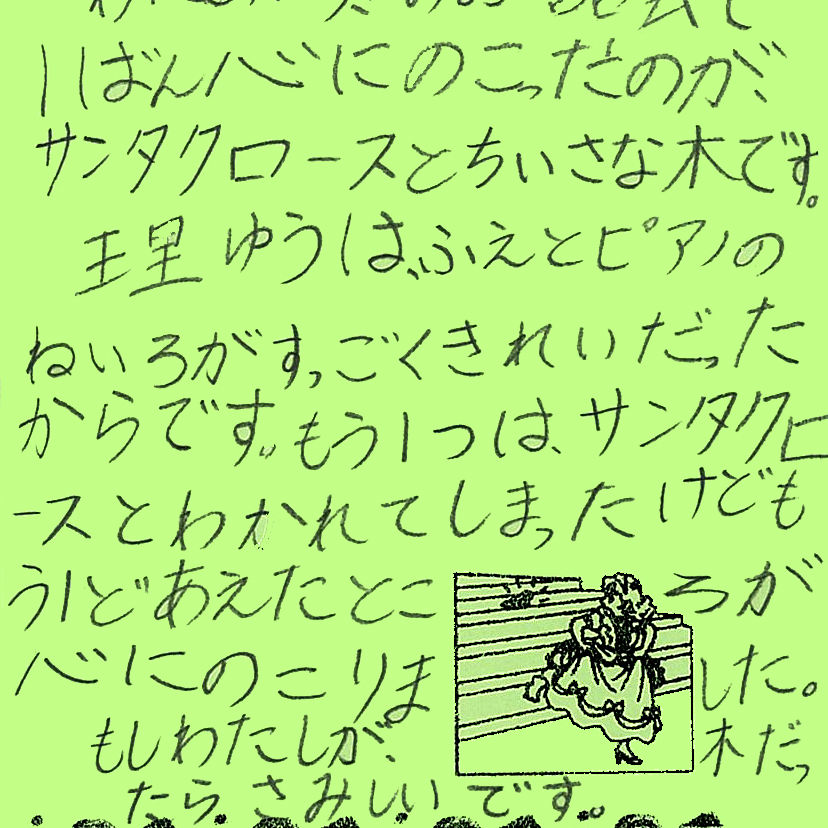 1ばん心にのこったのが、
サンタクロースとちいさな木です。
理ゆうは、ふえとピアノの
ねいろがすっごくきれいだった
からです。もう1つは、サンタクロ
ースとわかれてしまったけども
う1どあえたところが
心にのこりました。
もしわたしが、木だっ
たらさみしいです。